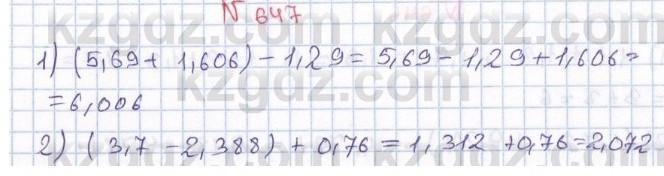 N 647
1) (5,69 + 1,606) - 1,29 = 5,69 - 1,29 + 1,606 =
= 6,006
2) (3,7 - 2,388) + 0,76 = 1,312 + 0,76 = 2,072
kzgdz.com